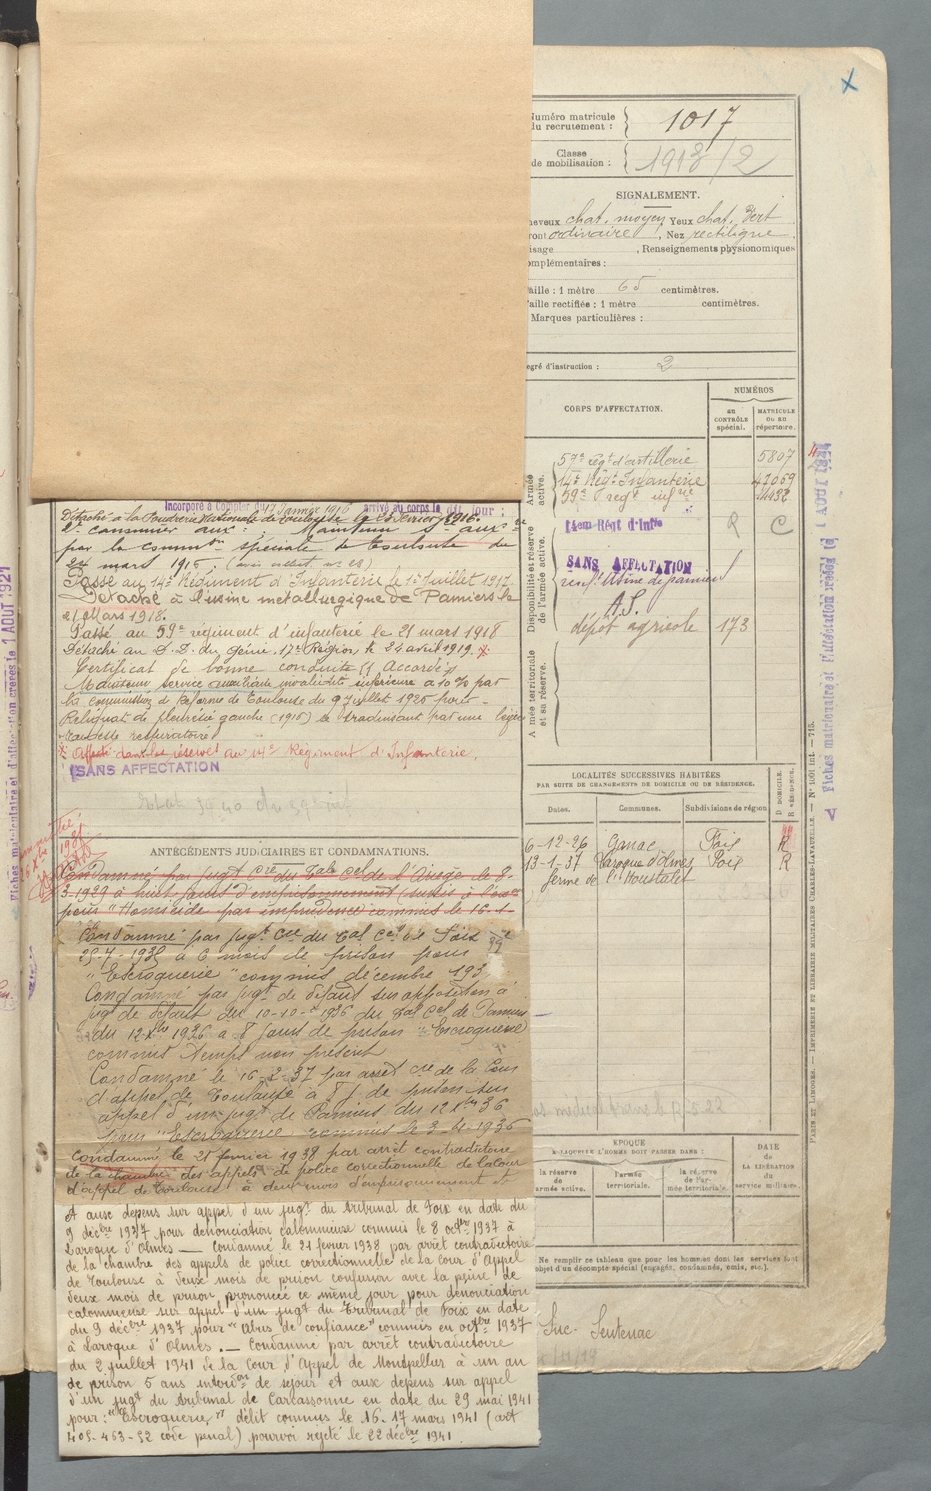 Numéro matricule
du recrutement : 1017
Classe
de mobilisation : 1913/2
SIGNALEMENT.
heveux chat. moyen Yeux chat. Vert
ront ordinaire, Nez rectiligne
isage , Renseignements physionomiques
omplémentaires :
aille : 1 mètre 65 centimètres.
aille rectifiée : 1 mètre centimètres.
Marques particulières :
egré d'instruction : 2
CORPS D'AFFECTATION.
NUMÉROS
au CONTRÔLE spécial.
MATRICULE OU AU répertoire.
Armée active.
57e régt d'artillerie 5807
14e Régt Infanterie
59e regt infie
Disponibilité et réserve de l'armée active.
14em Régt d'Infie R C
SANS AFFECTATION
Usine de pamiers
A.S.
dépôt agricole 173
A mée territoriale et sa réserve.
LOCALITÉS SUCCESSIVES HABITÉES
PAR SUITE DE CHANGEMENTS DE DOMICILE OU DE RÉSIDENCE.
Dates. Communes. Subdivisions de région.
6-12-26 Ganac Foix R
13-1-37 Laroque d'Olmes Foix R
ferme de l'Moustalet
EPOQUE
À LAQUELLE L'HOMME DOIT PASSER DANS :
la réserve de armée active.
l'armée territoriale.
la réserve de l'armée territoriale.
DATE
de
LA LIBÉRATION
du
service militaire.
Ne remplir ce tableau que pour les hommes dont les services font
objet d'un décompte spécial (engagés, condamnés, omis, etc.).
Luc-Sentenac
Incorporé à compter du 17 Janvier 1916 arrivé au corps le dit jour ;
Détaché à la Poudrerie Nationale de Toulouse le 25 février 1916.
Maintenu Sce aux
par la common spéciale de Toulouse du
24 mars 1916
Passé au 14e Régiment d'Infanterie le 1er Juillet 1917
Détaché à l'usine métallurgique de Pamiers le
21 Mars 1918.
Passé au 59e régiment d'infanterie le 21 mars 1918
Détaché au D.D. du Génie. 17e Région le 24 avril 1919.
Certificat de bonne conduite Accordé
Maintenu service auxiliaire invalidité inférieure à 10% par
la commission de Réforme de Toulouse du 9 Juillet 1920 pour
Reliquat de pleurésie gauche (1915) se traduisant par une légère
rudesse respiratoire
Affecté dans les réserves au 14e Régiment d'Infanterie.
SANS AFFECTATION
ANTÉCÉDENTS JUDICIAIRES ET CONDAMNATIONS.
Condamné par jugt Cre du Tal Cel de l'Ariège le 8-
3-1929 à huit jours d'emprisonnement
pour "Homicide par imprudence commis le 16-1-
Condamné par jugt Cre du Tal Cel de Foix
25-7-1935 à 6 mois de prison pour
"Escroquerie" commis décembre 193
Condamné par jugt de défaut sur opposition à
jugt de défaut du 10-10-1936 du Tal Cel de Pamiers
du 12 Xbre 1936 à 8 jours de prison "Escroquerie
commis temps non prescrit
Condamné le 16-2-37 par arrêt cre de la Cour
d'appel de Toulouse à 8 j. de prison sur
appel d'un jugt de Pamiers du 12 Xbre 36
pour "Escroquerie" commis le 3-4-1936
Condamné le 21 février 1938 par arrêt contradictoire
de la chambre des appels de police correctionnelle de la Cour
d'appel de Toulouse à deux mois d'emprisonnement et
et aux depens sur appel d'un jugt du tribunal de Foix en date du
9 décbre 1937 pour dénonciation calomnieuse commis le 8 octbre 1937 à
Laroque d'Olmes — Condamné le 21 février 1938 par arrêt contradictoire
de la chambre des appels de police correctionnelle de la Cour d'Appel
de Toulouse à deux mois de prison confusion avec la peine de
deux mois de prison prononcée ce même jour pour dénonciation
calomnieuse sur appel d'un jugt du Tribunal de Foix en date
du 9 décbre 1937 pour "Abus de confiance" commis en octbre 1937
à Laroque d'Olmes. — Condamné par arrêt contradictoire
du 2 juillet 1941 de la Cour d'Appel de Montpellier à un an
de prison 5 ans interdon de séjour et aux depens sur appel
d'un jugt du tribunal de Carcassonne en date du 29 mai 1941
pour : "Escroquerie" délit commis le 16-17 mars 1941 (art
405-463-52 code pénal) pourvoi rejeté le 22 décbre 1941.
PARIS ET LIMOGES. — IMPRIMERIE ET LIBRAIRIE MILITAIRES CHARLES-LAVAUZELLE.